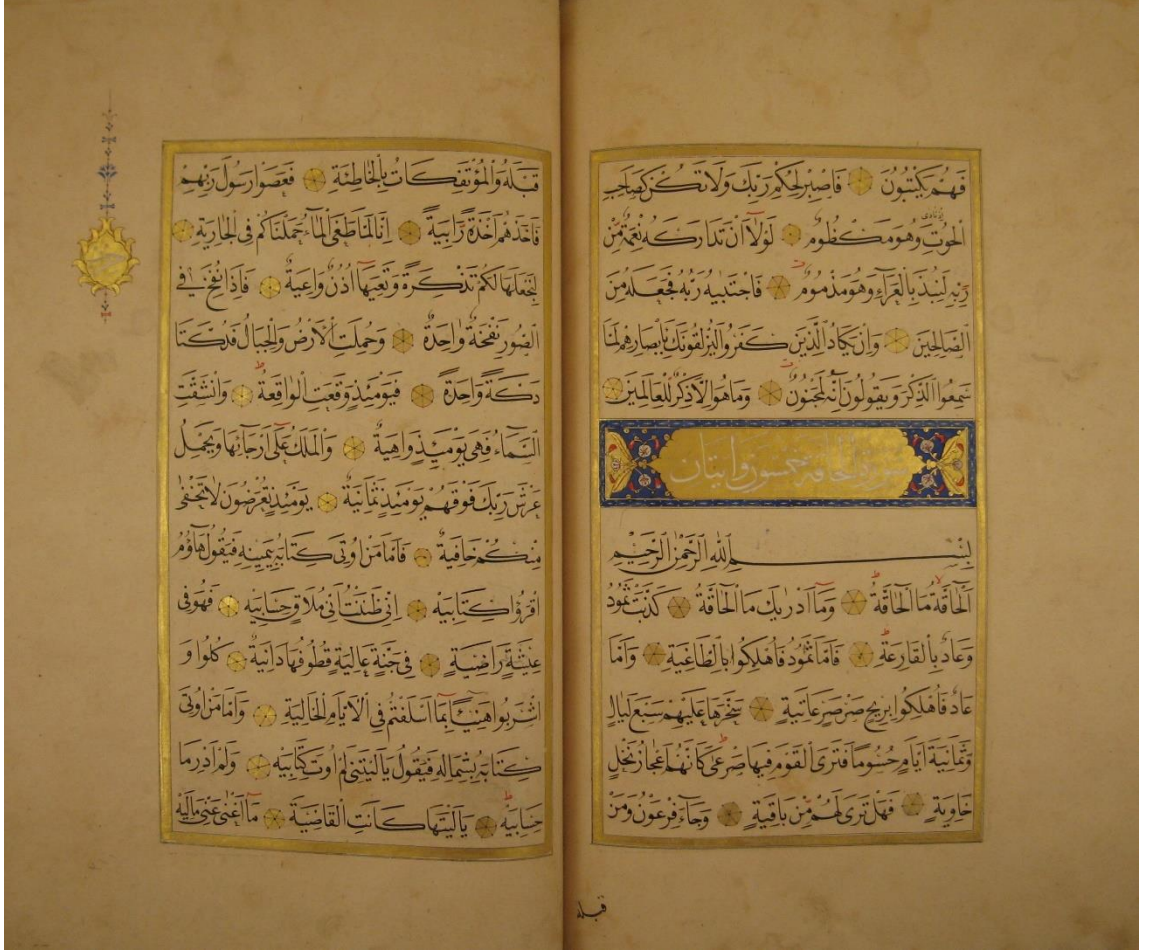 فَهُمْ يَكْتُبُونَ فَاصْبِرْ لِحُكْمِ رَبِّكَ وَلَا تَكُنْ كَصَاحِبِ
الْحُوتِ اِذْ نَادٰى وَهُوَ مَكْظُومٌ لَوْلَٓا اَنْ تَدَارَكَهُ نِعْمَةٌ مِنْ
رَبِّهِ لَنُبِذَ بِالْعَرَٓاءِ وَهُوَ مَذْمُومٌ فَاجْتَبٰيهُ رَبُّهُ فَجَعَلَهُ مِنَ
الصَّالِحِينَ وَاِنْ يَكَادُ الَّذِينَ كَفَرُوا لَيُزْلِقُونَكَ بِاَبْصَارِهِمْ لَمَّا
سَمِعُوا الذِّكْرَ وَيَقُولُونَ اِنَّهُ لَمَجْنُونٌ وَمَا هُوَ اِلَّا ذِكْرٌ لِلْعَالَمِينَ
سورة الحاقة خمسون وايتان
بِسْمِ اللّٰهِ الرَّحْمٰنِ الرَّحِيمِ
اَلْحَٓاقَّةُ مَا الْحَٓاقَّةُ وَمَٓا اَدْرٰيكَ مَا الْحَٓاقَّةُ كَذَّبَتْ ثَمُودُ
وَعَادٌ بِالْقَارِعَةِ فَاَمَّا ثَمُودُ فَاُهْلِكُوا بِالطَّاغِيَةِ وَاَمَّا
عَادٌ فَاُهْلِكُوا بِرِيحٍ صَرْصَرٍ عَاتِيَةٍ سَخَّرَهَا عَلَيْهِمْ سَبْعَ لَيَالٍ
وَثَمَانِيَةَ اَيَّامٍ حُسُومًا فَتَرَى الْقَوْمَ فِيهَا صَرْعٰى كَاَنَّهُمْ اَعْجَازُ نَخْلٍ
خَاوِيَةٍ فَهَلْ تَرٰى لَهُمْ مِنْ بَاقِيَةٍ وَجَٓاءَ فِرْعَوْنُ وَمَنْ
قبله
قَبْلَهُ وَالْمُؤْتَفِكَاتُ بِالْخَاطِئَةِ فَعَصَوْا رَسُولَ رَبِّهِمْ
فَاَخَذَهُمْ اَخْذَةً رَابِيَةً اِنَّا لَمَّا طَغَى الْمَٓاءُ حَمَلْنَاكُمْ فِي الْجَارِيَةِ
لِنَجْعَلَهَا لَكُمْ تَذْكِرَةً وَتَعِيَهَٓا اُذُنٌ وَاعِيَةٌ فَاِذَا نُفِخَ فِي
الصُّورِ نَفْخَةٌ وَاحِدَةٌ وَحُمِلَتِ الْاَرْضُ وَالْجِبَالُ فَدُكَّتَا
دَكَّةً وَاحِدَةً فَيَوْمَئِذٍ وَقَعَتِ الْوَاقِعَةُ وَانْشَقَّتِ
السَّمَٓاءُ فَهِيَ يَوْمَئِذٍ وَاهِيَةٌ وَالْمَلَكُ عَلٰٓى اَرْجَٓائِهَا وَيَحْمِلُ
عَرْشَ رَبِّكَ فَوْقَهُمْ يَوْمَئِذٍ ثَمَانِيَةٌ يَوْمَئِذٍ تُعْرَضُونَ لَا تَخْفٰى
مِنْكُمْ خَافِيَةٌ فَاَمَّا مَنْ اُوتِيَ كِتَابَهُ بِيَمِينِهِ فَيَقُولُ هَٓاؤُمُ
اقْرَؤُا كِتَابِيَهْ اِنِّي ظَنَنْتُ اَنِّي مُلَاقٍ حِسَابِيَهْ فَهُوَ فِي
عِيشَةٍ رَاضِيَةٍ فِي جَنَّةٍ عَالِيَةٍ قُطُوفُهَا دَانِيَةٌ كُلُوا وَ
اشْرَبُوا هَنِيٓـًٔا بِمَٓا اَسْلَفْتُمْ فِي الْاَيَّامِ الْخَالِيَةِ وَاَمَّا مَنْ اُوتِيَ
كِتَابَهُ بِشِمَالِهِ فَيَقُولُ يَا لَيْتَنِي لَمْ اُوتَ كِتَابِيَهْ وَلَمْ اَدْرِ مَا
حِسَابِيَهْ يَا لَيْتَهَا كَانَتِ الْقَاضِيَةَ مَٓا اَغْنٰى عَنِّي مَالِيَهْ